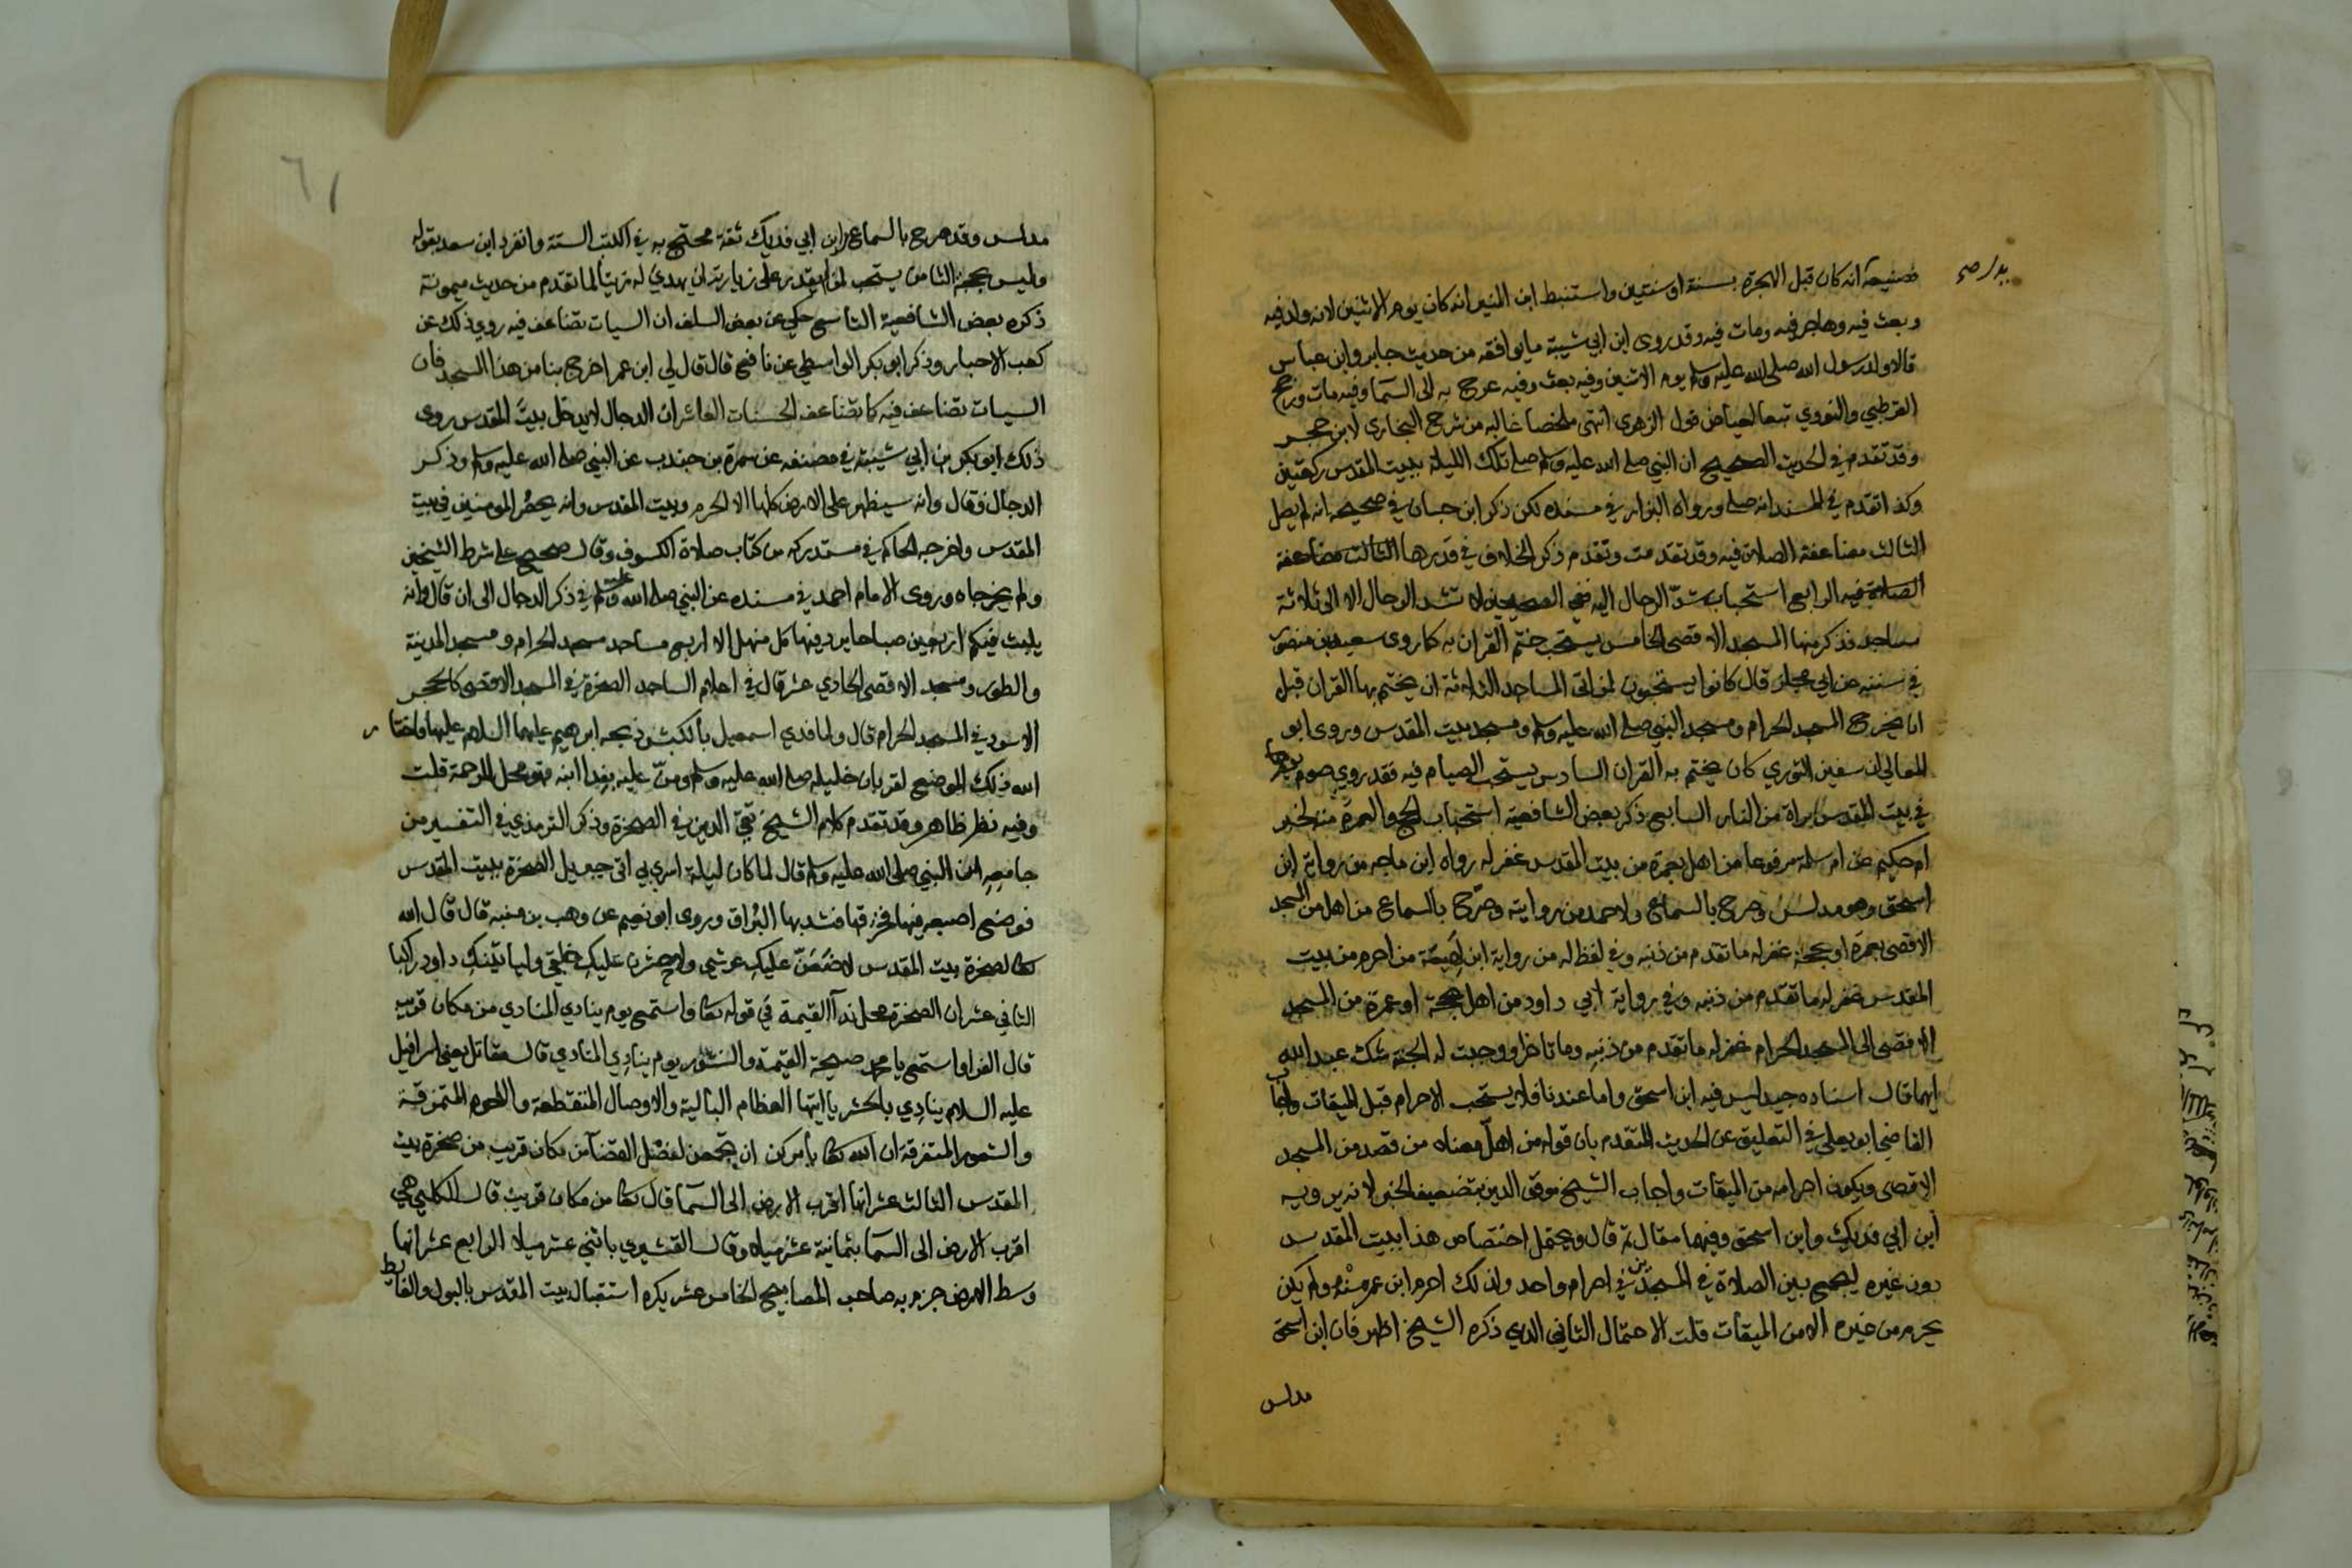 فصنيحة انه كان قبل الهجرة بسنة او سنتين واستنبط ابن المنير انه كان يوم الاثنين لانه ولد فيه
وبعث فيه وهاجر فيه ومات فيه وقد روى ابن ابي شيبة ما يوافقه من حديث جابر وابن عباس
قالا ولد رسول الله صلى الله عليه وسلم يوم الاثنين وفيه بعث وفيه عرج به الى السما وفيه مات ورجح
القرطبي والنووي تبعا لعياض قول الزهري انتهى ملخصا غالبه من شرح البخاري لابن حجر
وقد تقدم في الحديث الصحيح ان النبي صلى الله عليه وسلم صلى تلك الليلة ببيت المقدس ركعتين
وكذا تقدم في المسند انه صلى ورواه البزار في مسنده لكن ذكر ابن حبان في صحيحه انه لم يصل
الثالث مضاعفة الصلاة فيه وقد تقدمت وتقدم ذكر الخلاف في قدرها الثالث مضاعفة
الصلاة فيه الرابع استحباب شد الرحال اليه ففي الصحيحين لا تشد الرحال الا الى ثلاثة
مساجد فذكر منها المسجد الاقصى الخامس يستحب ختم القران به كما روى سعيد بن منصور
في سننه عن ابي مجلز قال كانوا يستحبون لمن اتى المساجد الثلاثة ان يختم بها القران قبل
ان يخرج المسجد الحرام ومسجد النبي صلى الله عليه وسلم ومسجد بيت المقدس وروى ابو
المعالي ان سفين الثوري كان يختم به القران السادس يستحب الصيام فيه فقد روي صوم يوم
في بيت المقدس براة من النار السابع ذكر بعض الشافعية استحباب الحج والعمرة منه لخبر
ام حكيم عن ام سلمة مرفوعا من اهل بعمرة من بيت المقدس غفر له رواه ابن ماجه من رواية ابن
اسحق وهو مدلس وصرح بالسماع ولاحمد من روايته وصرح بالسماع من اهل من المسجد
الاقصى بعمرة او بحجة غفر له ما تقدم من ذنبه وفي لفظ له من رواية ابن لهيعة من احرم من بيت
المقدس غفر له ما تقدم من ذنبه وفي رواية ابي داود من اهل بحجة او عمرة من المسجد
الاقصى الى المسجد الحرام غفر له ما تقدم من ذنبه وما تاخر او وجبت له الجنة شك عبد الله
ايهما قال اسناده جيد ليس فيه ابن اسحق واما عندنا فلا يستحب الاحرام قبل الميقات واجاب
القاضي ابو يعلي في التعليق عن الحديث المتقدم بان قوله من اهل معناه من قصد من المسجد
الاقصى ويكون احرامه من الميقات واجاب الشيخ موفق الدين بتضعيف الخبر لانه يرويه
ابن ابي فديك وابن اسحق وفيهما مقال ثم قال ويحتمل اختصاص هذا ببيت المقدس
دون غيره ليجمع بين الصلاة في المسجدين في احرام واحد ولذلك احرم ابن عمر منه ولم يكن
يحرم من غيره الا من الميقات قلت الاحتمال الثاني الذي ذكره الشيخ اظهر فان ابن اسحق
مدلس
٦١
مدلس وقد صرح بالسماع وابن ابي فديك ثقة محتج به في الكتب الستة وانفرد ابن سعد بقوله
وليس بحجة الثامن يستحب لمن لم يقدر على زيارته ان يهدي له زيتا لما تقدم من حديث ميمونة
ذكره بعض الشافعية التاسع حكي عن بعض السلف ان السيات تضاعف فيه روي ذلك عن
كعب الاحبار وذكر ابو بكر الواسطي عن نافع قال قال لي ابن عمر اخرج بنا من هذا المسجد فان
السيات تضاعف فيه كما تضاعف الحسنات العاشر ان الدجال لا يدخل بيت المقدس روى
ذلك ابو بكر بن ابي شيبة في مصنفه عن سمرة بن جندب عن النبي صلى الله عليه وسلم وذكر
الدجال فقال وانه سيظهر على الارض كلها الا الحرم وبيت المقدس وانه يحصر المومنين في بيت
المقدس واخرجه الحاكم في مستدركه من كتاب صلاة الكسوف وقال صحيح على شرط الشيخين
ولم يخرجاه وروى الامام احمد في مسنده عن النبي صلى الله عليه وسلم في ذكر الدجال الى ان قال وانه
يلبث فيكم اربعين صباحا يرد فيها كل منهل الا اربع مساجد مسجد الحرام ومسجد المدينة
والطور ومسجد الاقصى الحادي عشر قال في اعلام الساجد الصخرة في المسجد الاقصى كالحجر
الاسود في المسجد الحرام قال ولما فدي اسمعيل بالكبش ذبحه ابرهيم عليهما السلام عليها فاختار
الله ذلك الموضع لقربان خليله صلى الله عليه وسلم ومن عليه بفدا ابنه فهو محل للرحمة قلت
وفيه نظر ظاهر وقد تقدم كلام الشيخ تقي الدين في الصخرة وذكر الترمذي في التفسير من
جامعه ان النبي صلى الله عليه وسلم قال لما كان ليلة اسري بي اتى جبريل الصخرة ببيت المقدس
فوضع اصبعه فيها فخرقها فشد بها البراق وروى ابو نعيم عن وهب بن منبه قال قال الله
تعالى لصخرة بيت المقدس لاضعن عليك عرشي ولاحشرن عليك خلقي ولياتينك داود راكبا
الثاني عشر ان الصخرة محل ندآ القيمة في قوله تعالى واستمع يوم ينادي المنادي من مكان قريب
قال الفرا واستمع يا محمد صيحة القيمة والنشور يوم ينادي المنادي قال مقاتل يعني اسرافيل
عليه السلام ينادي بالحشر يا ايتها العظام البالية والاوصال المتقطعة واللحوم المتمزقة
والشعور المتفرقة ان الله تعالى يامركن ان تجتمعن لفصل القضآ من مكان قريب من صخرة بيت
المقدس الثالث عشر انها اقرب الارض الى السما قال تعالى من مكان قريب قال الكلبي هي
اقرب الارض الى السما بثمانية عشر ميلا وقال القشيري باثني عشر ميلا الرابع عشر انها
وسط الارض جزم به صاحب المصابيح الخامس عشر يكره استقبال بيت المقدس بالبول والغايط